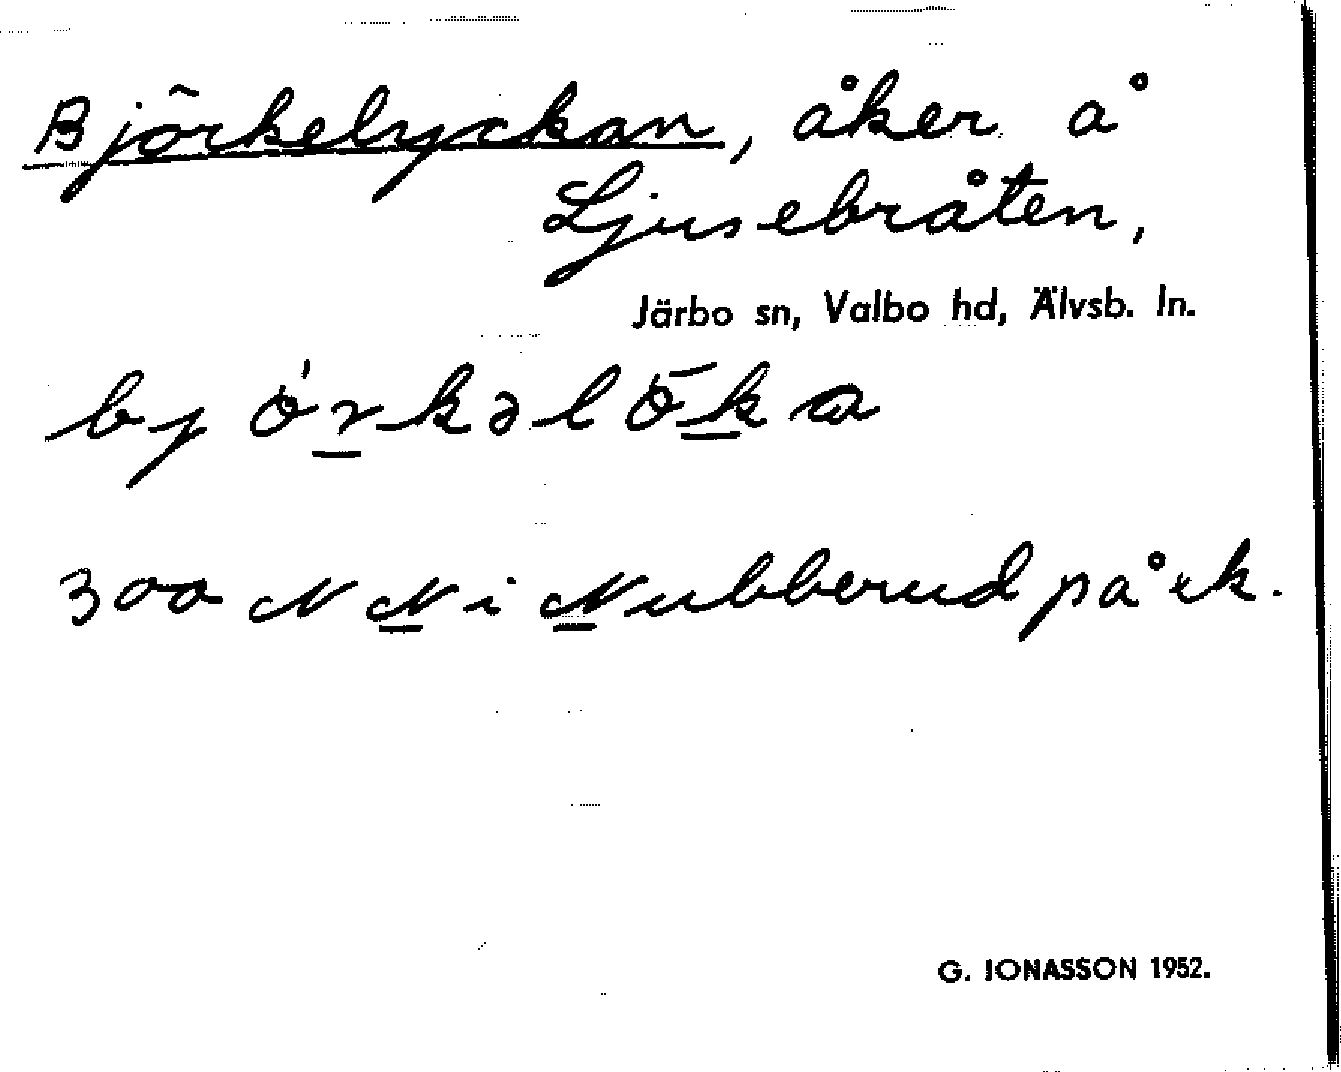 Björkelyckan, åker å
Ljusebråten,
Järbo sn, Valbo hd, Älvsb. ln.
bjö́rkəlȫka
300 m NNi Nubberud på ek.
G. JONASSON 1952.